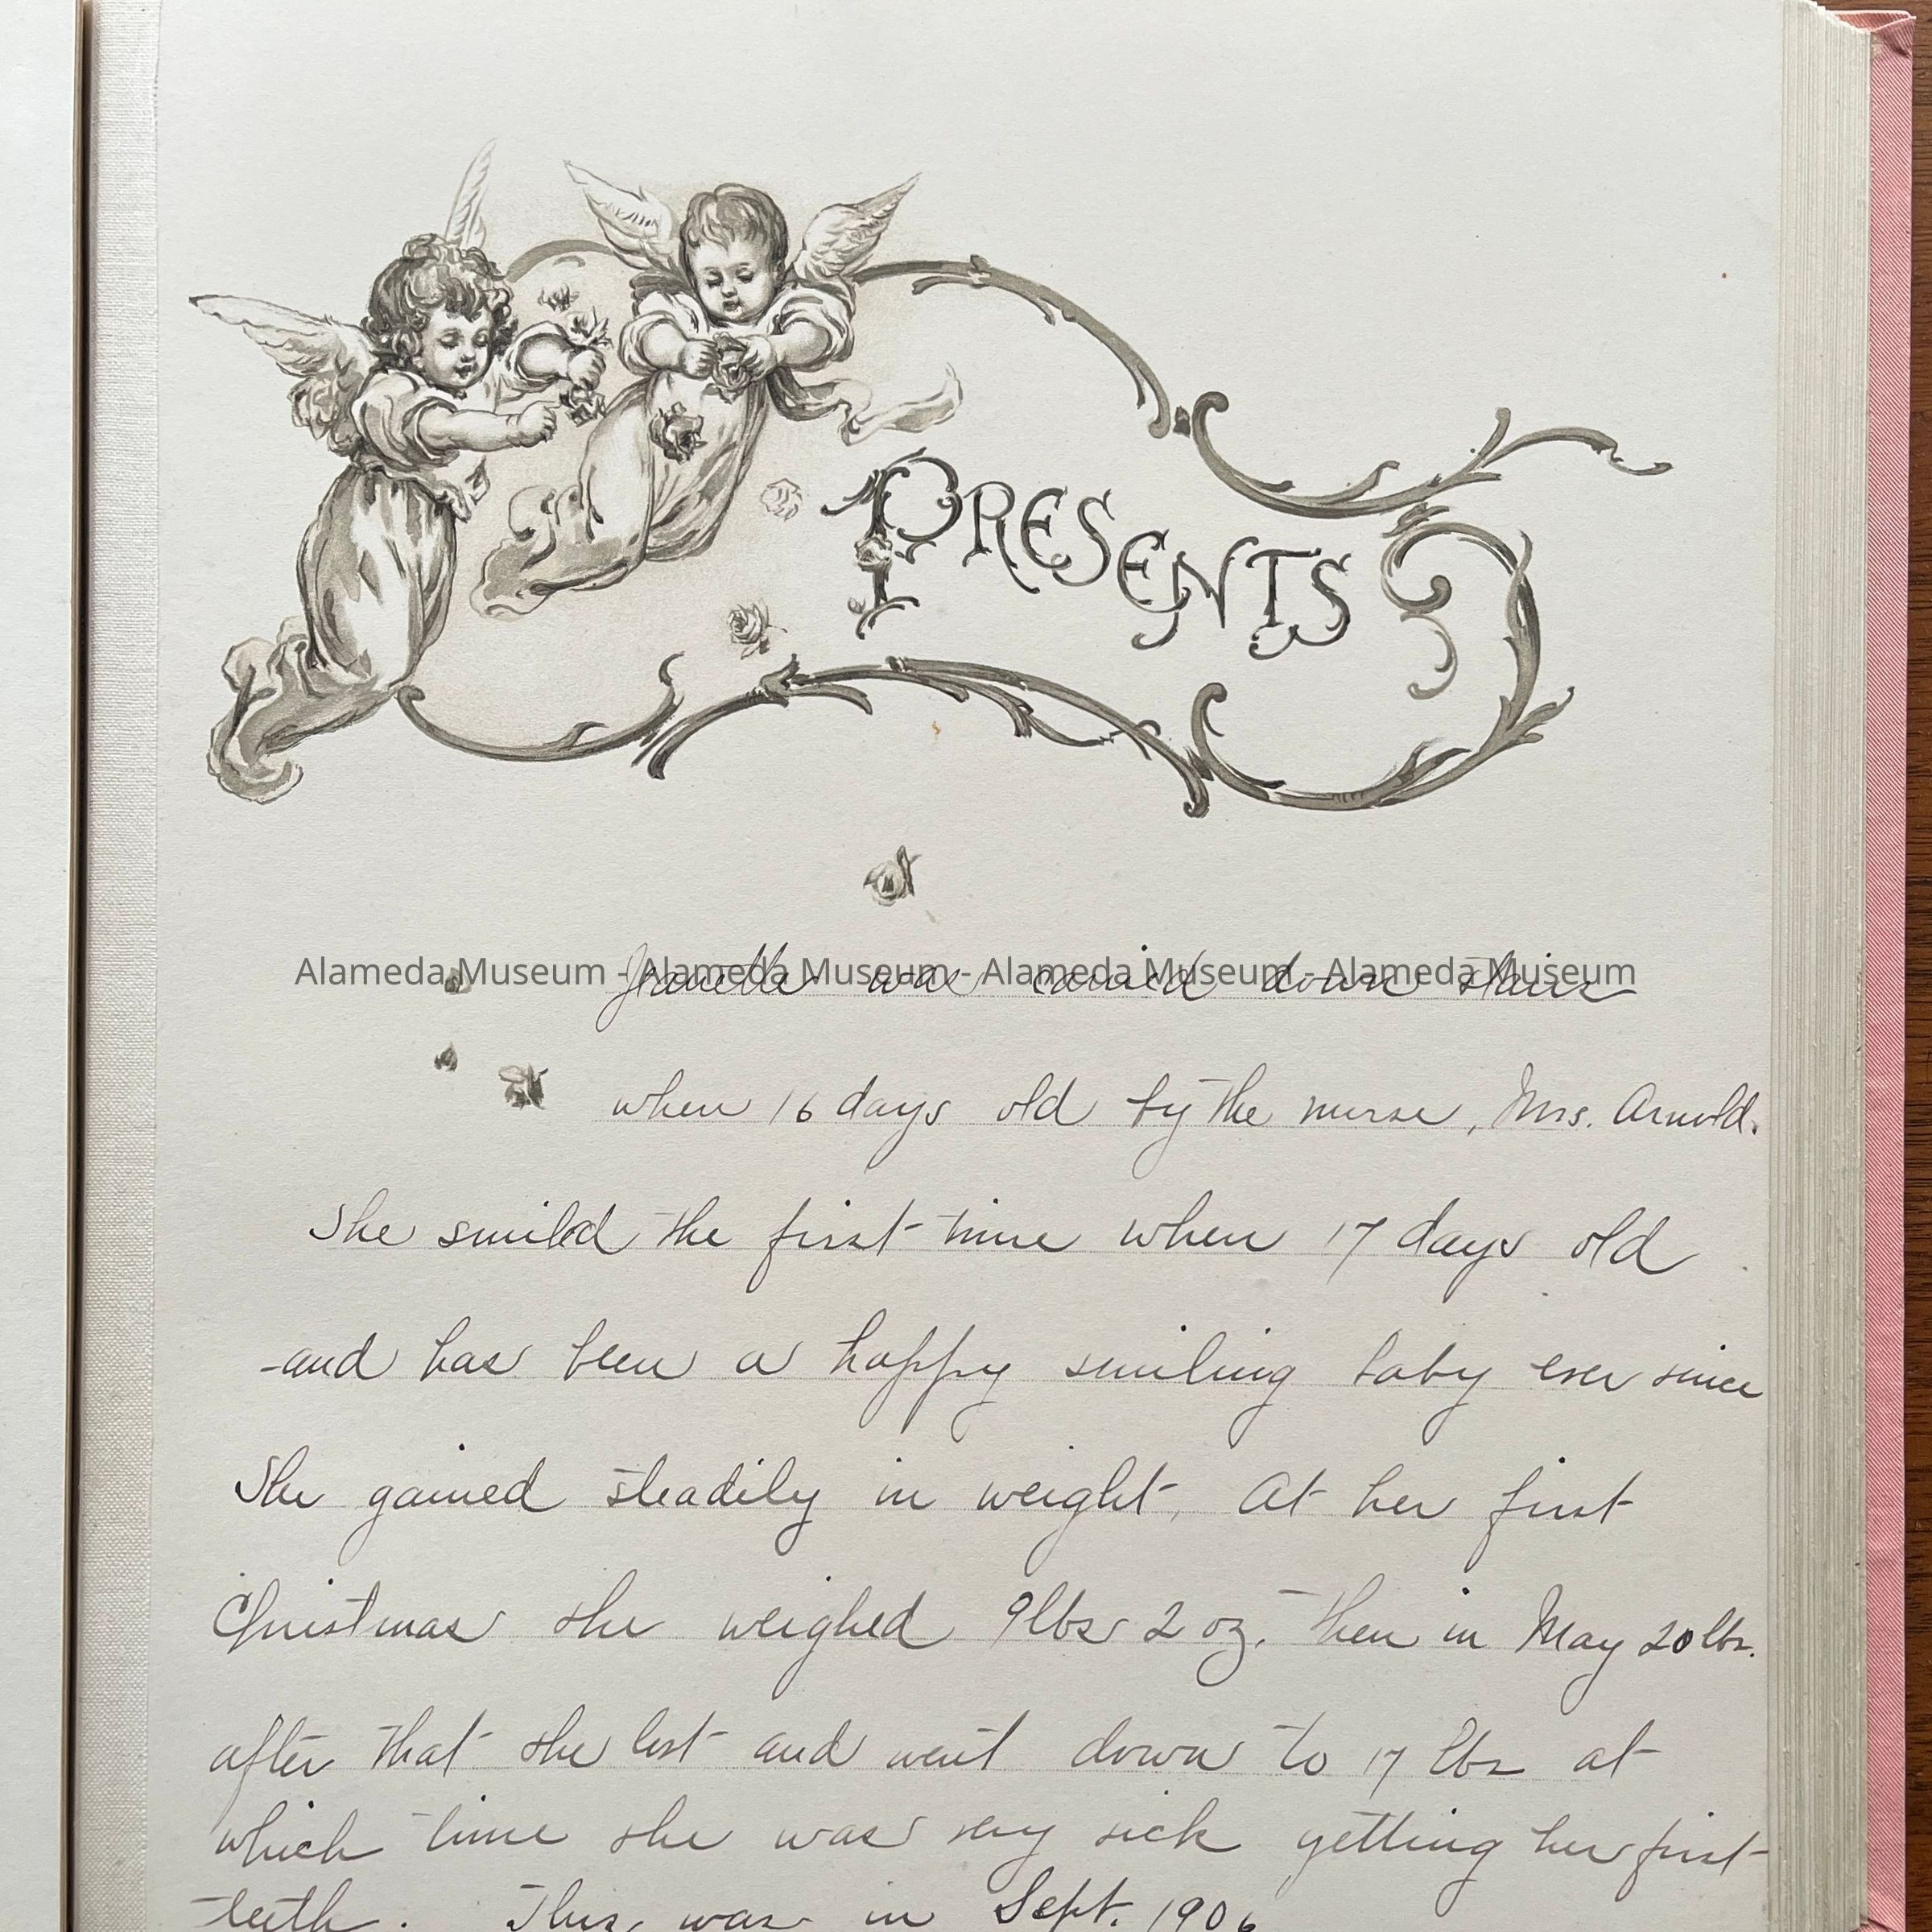 PRESENTS
Alameda Museum - Alameda Museum - Alameda Museum - Alameda Museum
Jeanette was carried down stairs
when 16 days old by the nurse, Mrs. Arnold.
She smiled the first time when 17 days old
and has been a happy smiling baby ever since
She gained steadily in weight. At her first
Christmas she weighed 9lbs 2 oz. Then in May 20 lbs.
after that she lost and went down to 17 lbs at
which time she was very sick getting her first
teeth. This was in Sept. 1906